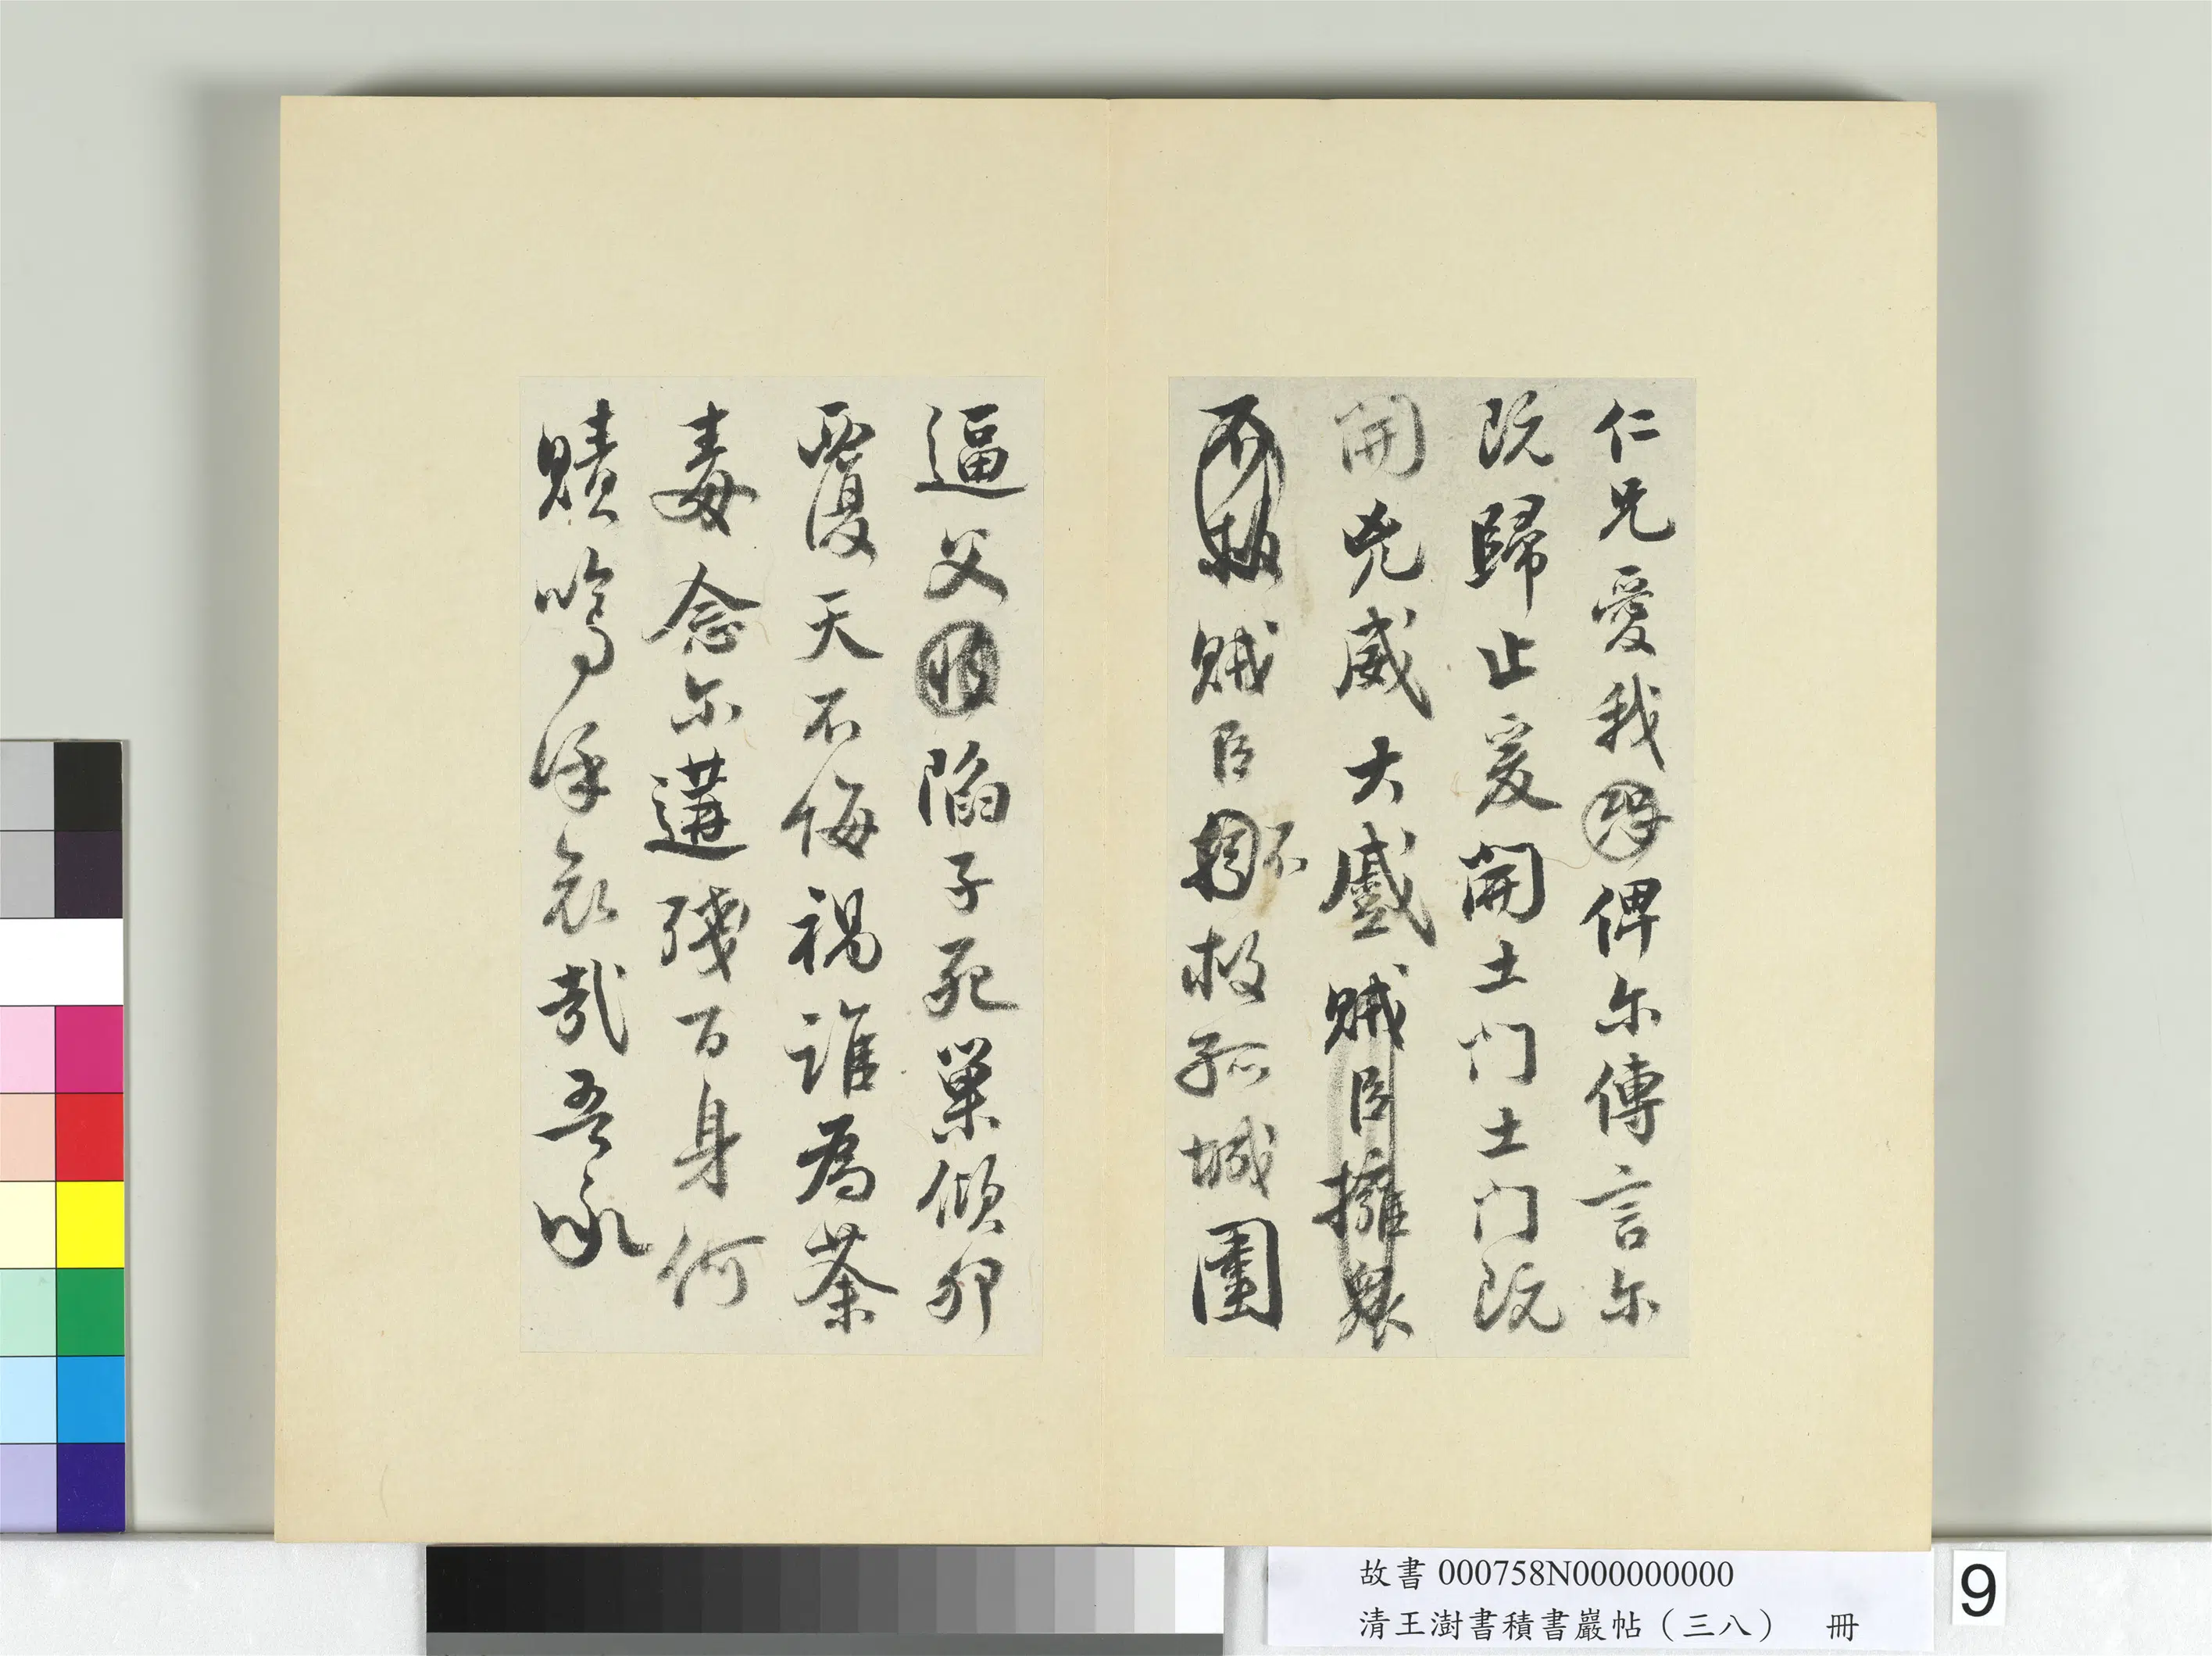 仁兄愛我俾尔傳言尔
既歸止爰開土门土门既
開兇威大蹙賊臣擁衆
不救賊臣不救孤城圍
逼父陷子死巢傾卵
覆天不悔禍誰為荼
毒念尔遘殘百身何
贖嗚呼哀哉吾承
故書 000758N000000000
清王澍書積書巖帖（三八） 冊
9